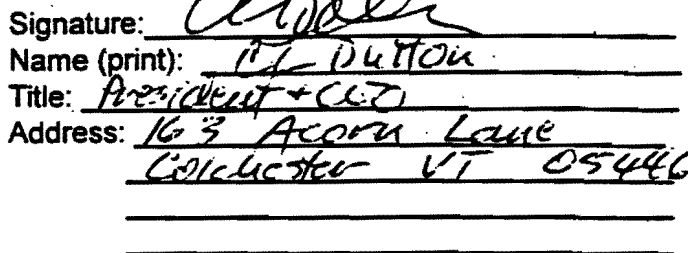 Signature:
Name (print): Dutton
Title: President + CEO
Address: 163 Acorn Lane
Colchester VT 05446